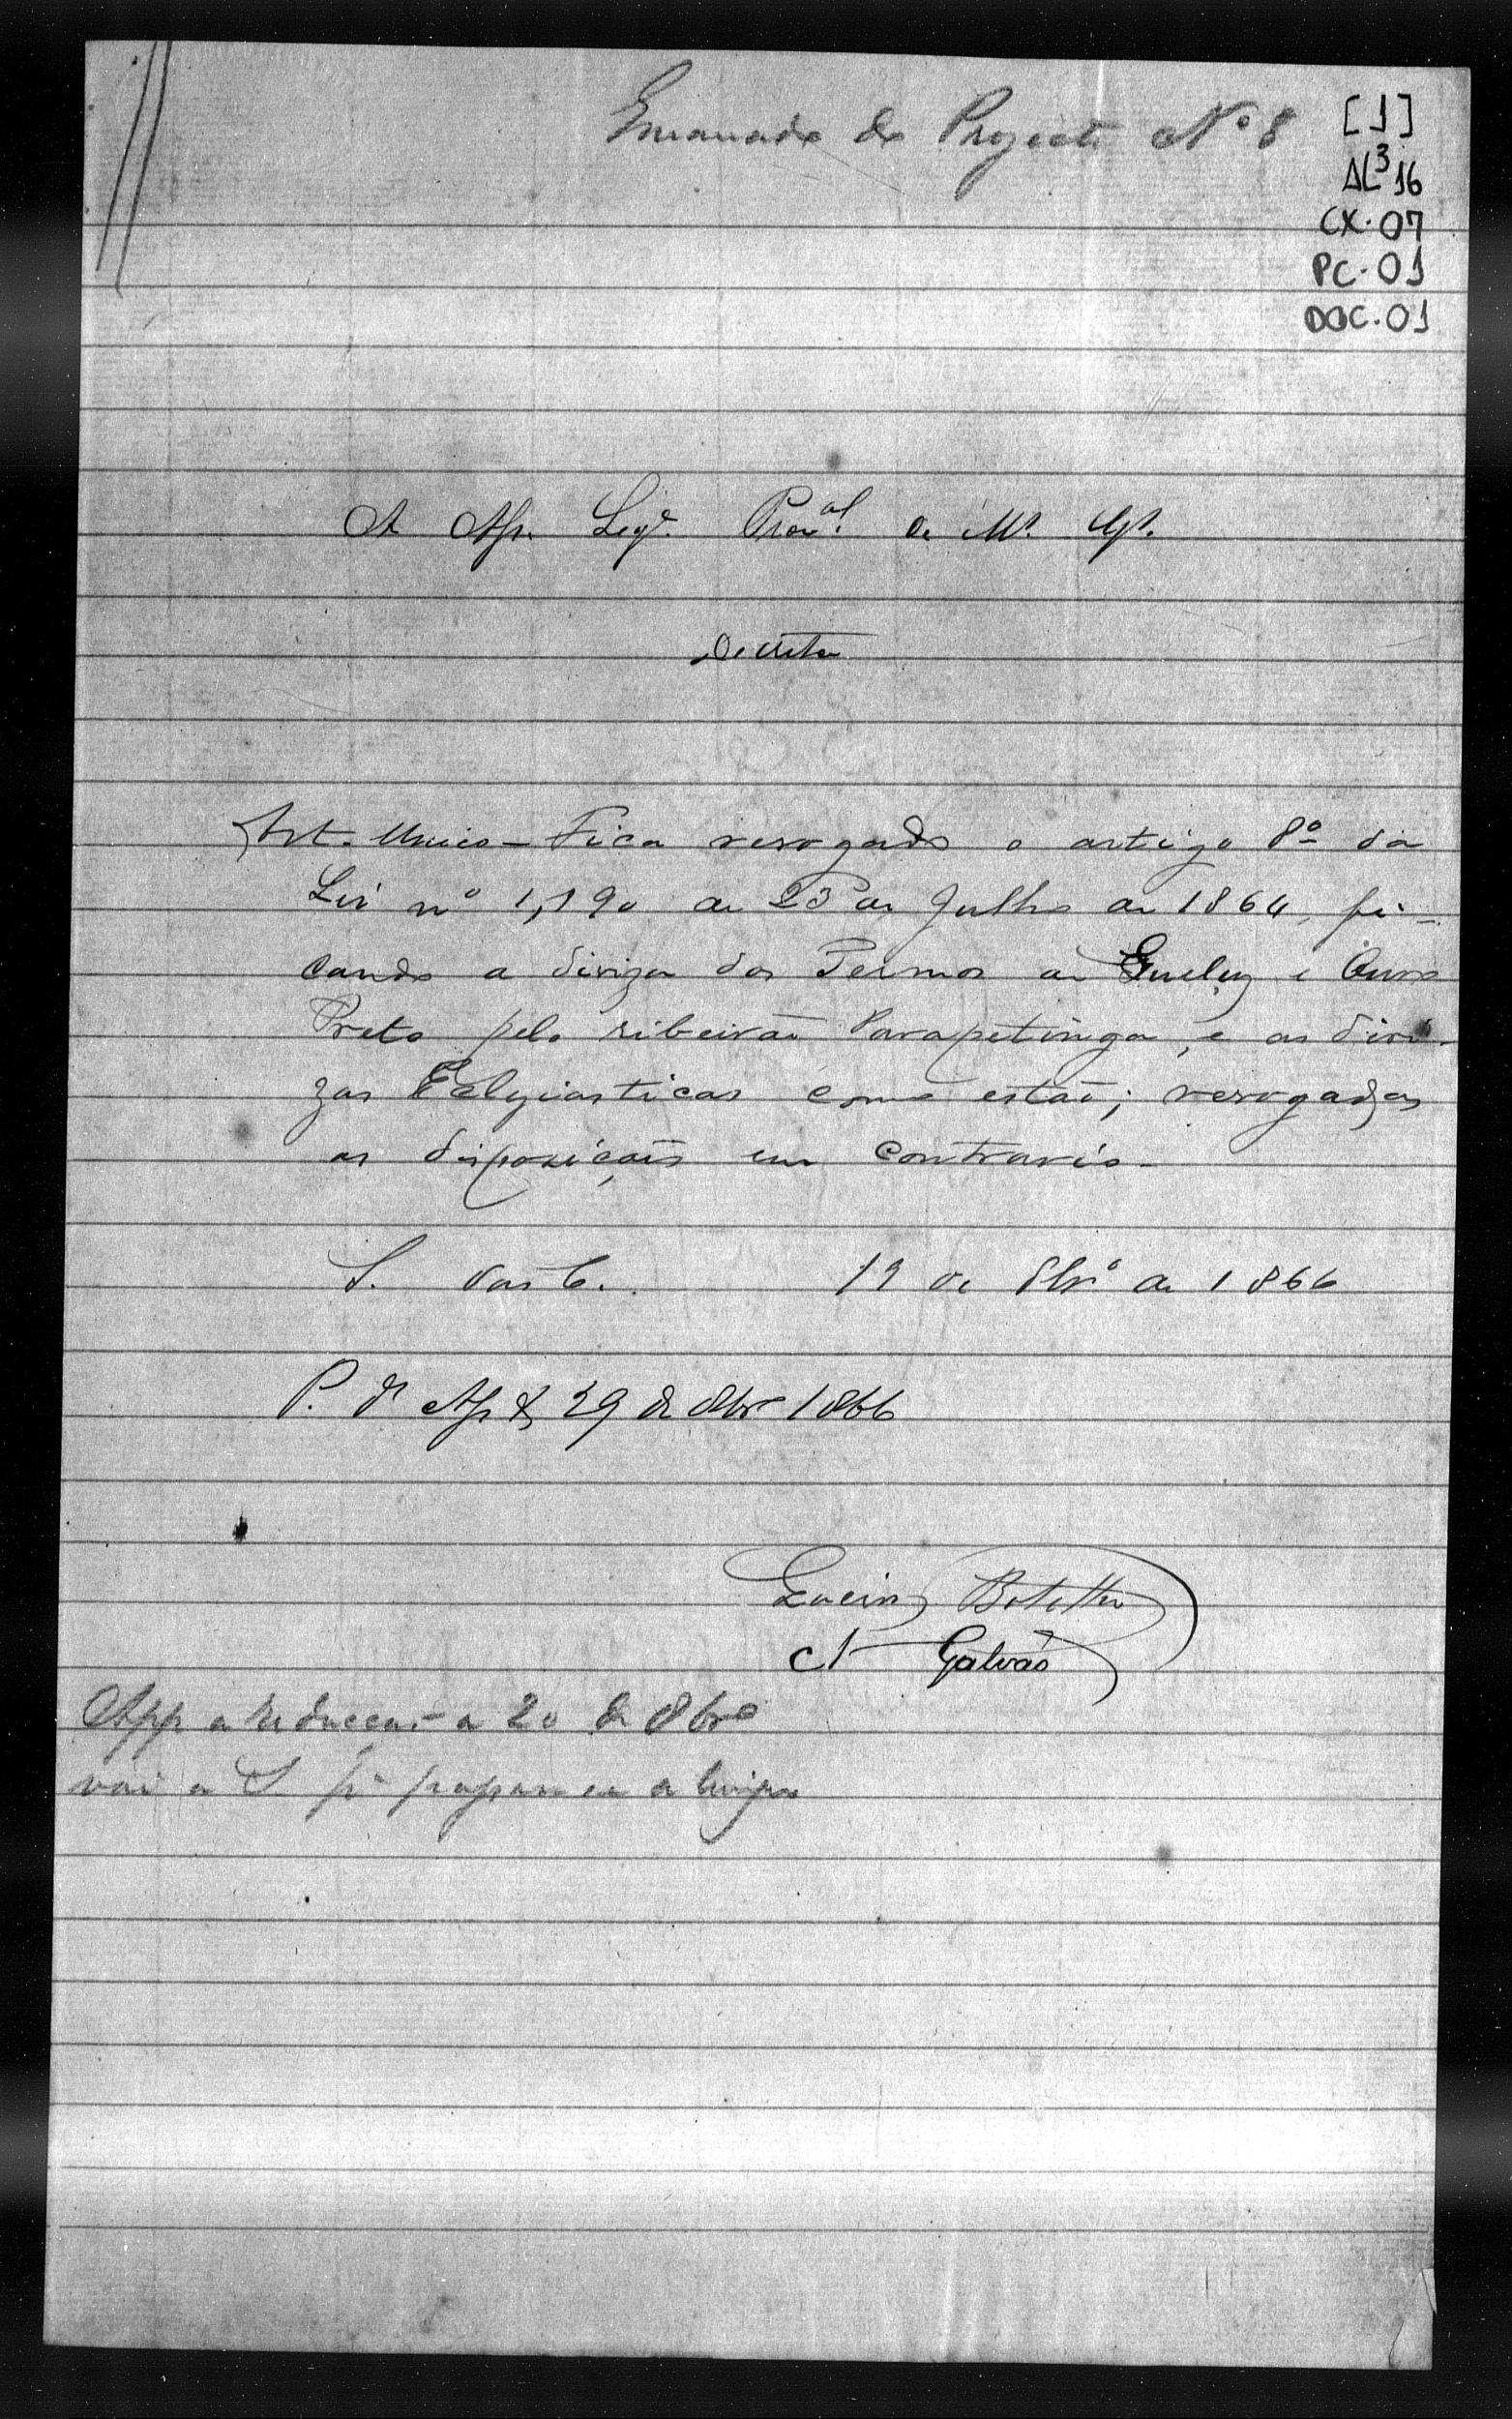 Emanado do Projecto Nº 8
[1]
AL³ 16
CX. 07
PC. 01
DOC. 01
A Ass. Legª. Provᵃˡ. de Mˢ. Gˢ.
Decreta
Art. Unico – Fica revogado o artigo 8º da
Lei nº 1,190 de 23 de Julho de 1864, fi-
cando a diviza dos Termos de Queluz e Ouro
Preto pelo ribeirão Varapetinga, e as divi-
zas Eclyiasticas como estão; revogadas
as dispozições em contrario –
S. das C. 19 de 8brº de 1866
P. 1ª 29 de 8bro 1866
Botelho
Galvão
App a reducção a 20 de 8bro
vai a S. pª